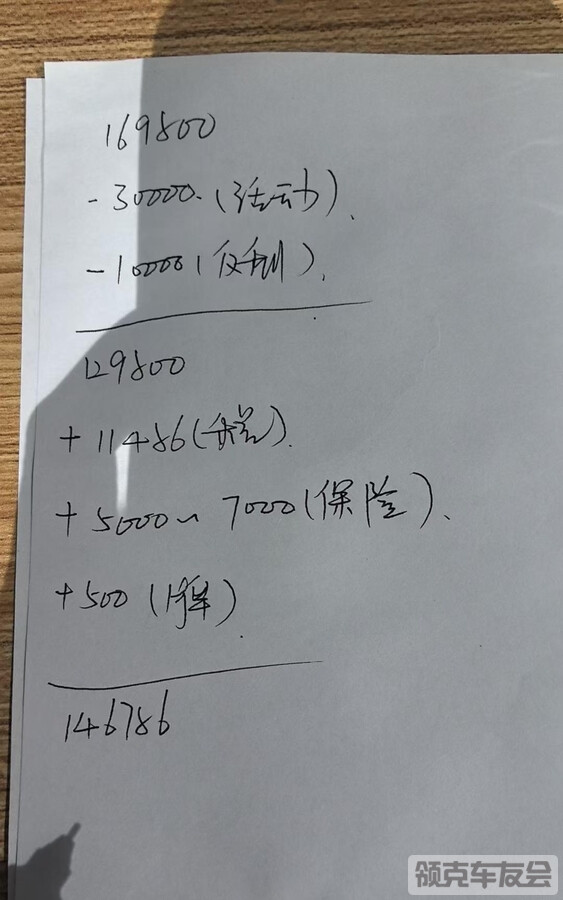 169800
-30000.(活动).
-10000(返利).
129800
+11486(税).
+5000~7000(保险).
+500(牌).
146786
领克车友会